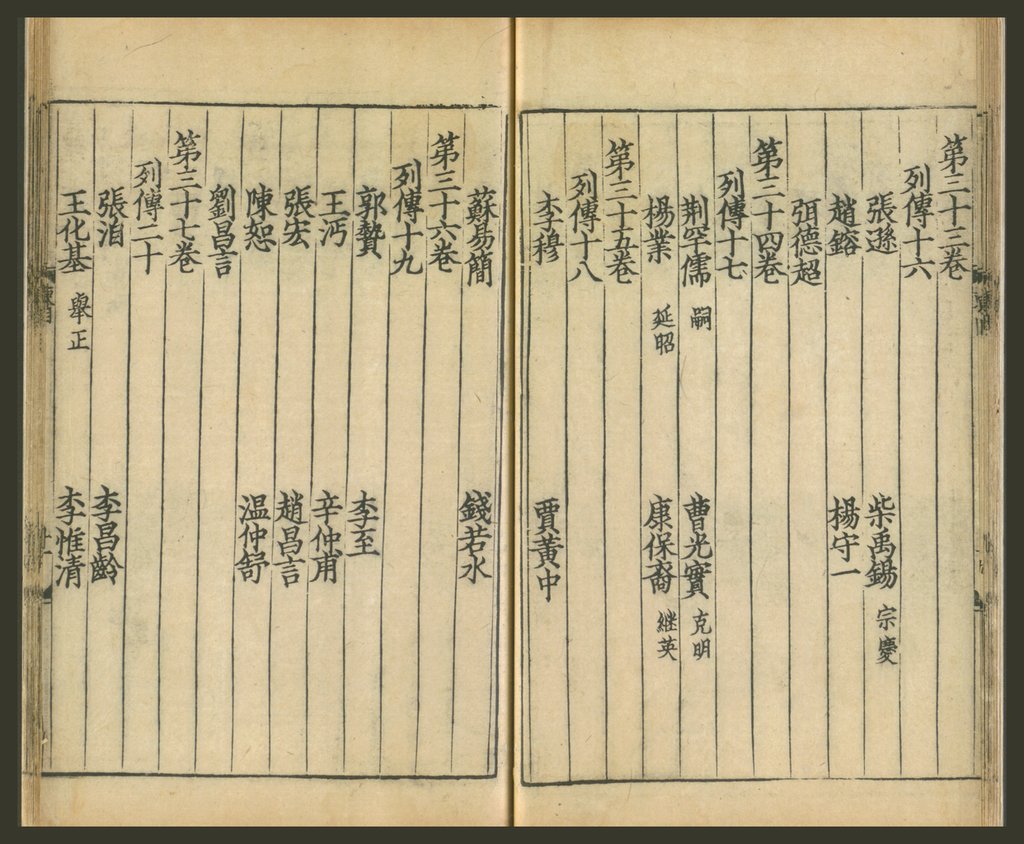 第三十三卷
列傳十六
張遜 柴禹錫 宗慶
趙鎔 楊守一
弭德超
第三十四卷
列傳十七
荆罕儒 嗣 曹光實 克明
楊業 延昭 康保裔 継英
第三十五卷
列傳十八
李穆 賈黃中
蘇易簡 錢若水
第三十六卷
列傳十九
郭贄 李至
王沔 辛仲甫
張宏 趙昌言
陳恕 温仲舒
劉昌言
第三十七卷
列傳二十
張洎 李昌齡
王化基 舉正 李惟清